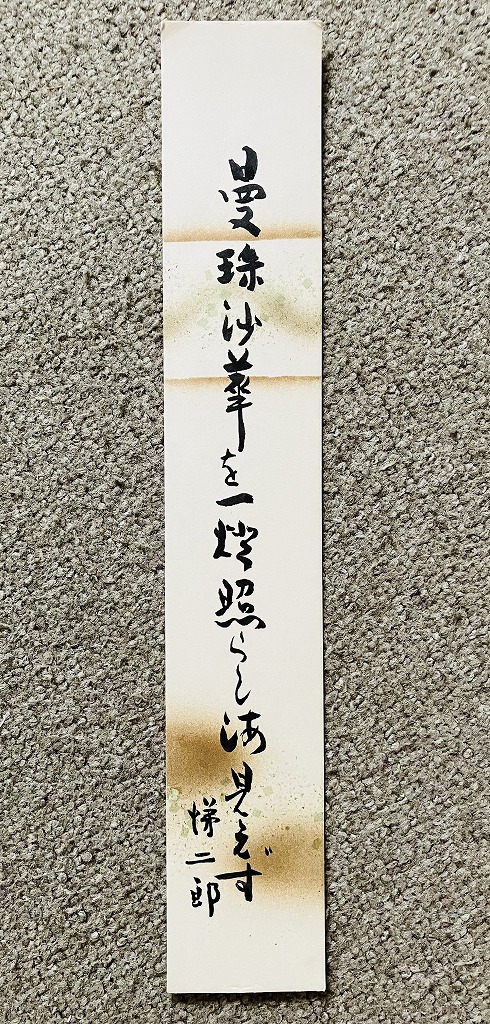 曼珠沙華を一燈照らし海見えず
悌二郎